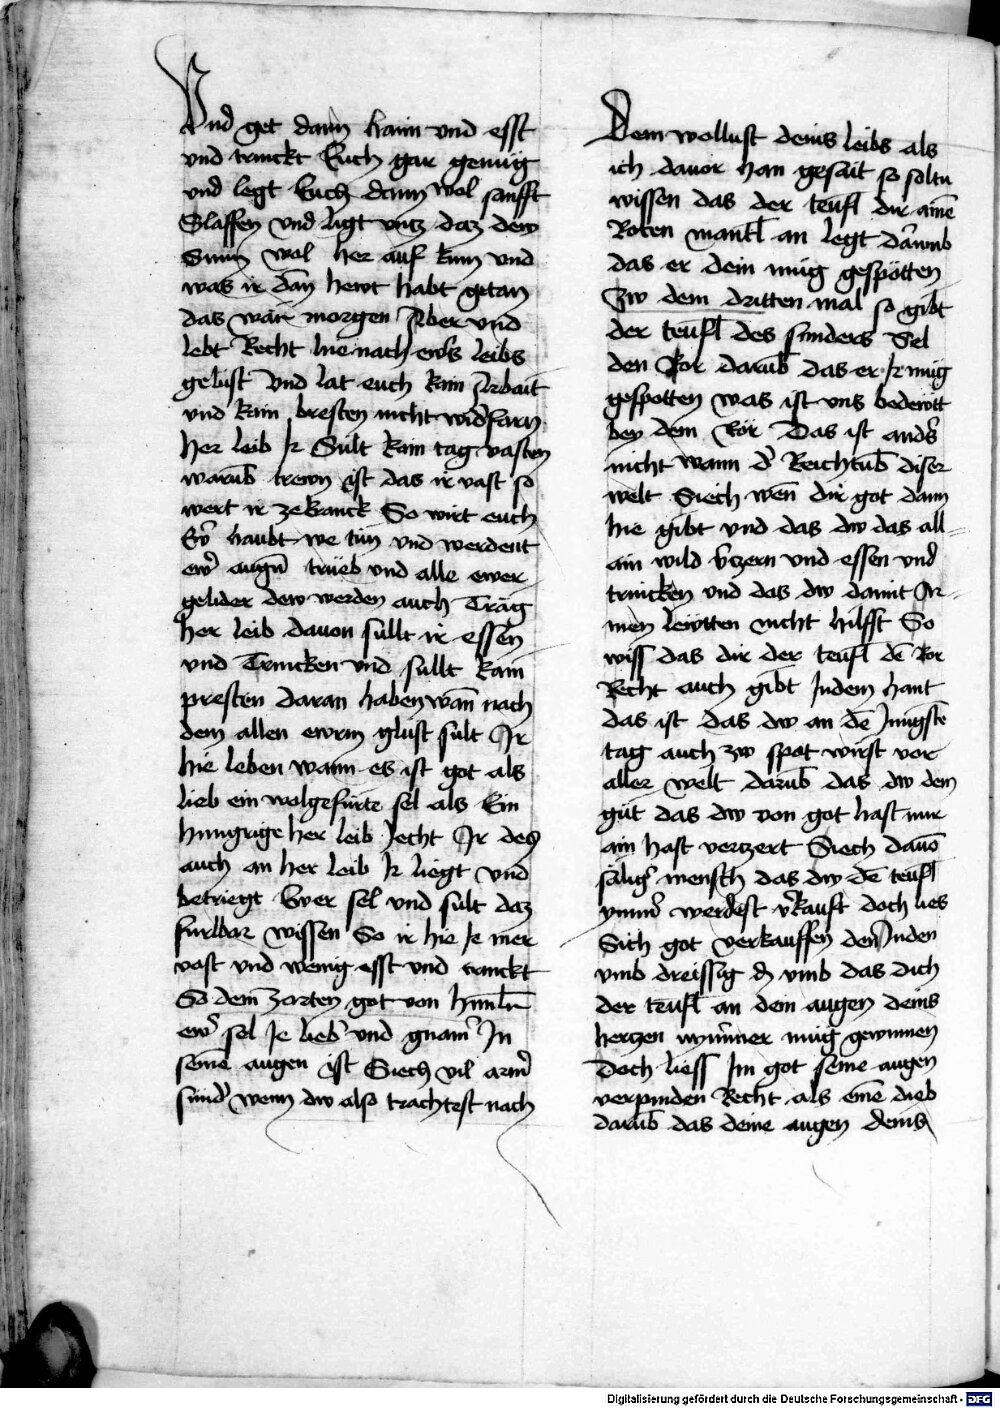 Vnd get dann haim vnd esst
vnd trinckt Euch gar genüg
vnd legt Euch dann wol sanfft
Slaffen vnd ligt vntz daz dew
Sunn wol her auf kum vnd
was ir dan hewt habt getan
das wär morgen Aber vnd
lebt Recht hie nach ewrs leibs
gelust Vnd lat euch kain Arbait
vnd kain bresten nicht widfarn
her leib Ir Sült kain tag vasten
warūb trewn ist das ir vast so
wert ir ze kranck So wirt euch
Ewr haubt we tun vnd werdent
ewr augn trüeb vnd alle ewer
gelider dew werden auch Träg
her leib dauon süllt ir essen
vnd Trincken vnd süllt kain
presten daran haben wan nach
dem allen ewrm glust sült Ir
hie leben wann es ist got als
lieb ein wolgefürte sel als Ein
hungrige her leib secht Ir des
auch an her leib Ir liegt vnd
betriegt Ewer sel vnd sült daz
fürbar wissen So ir hie ie mer
vast vnd wenig esst vnd tranckt
So dem zarten got von himln
ewr sel Ie lieb vnd gnam In
seinē augen ist Siech vil armr
sündr wenn dw also trachtest nach
Dem wollust deins leibs als
ich dauor han gesait so soltu
wissen das der teufl dir ainē
Roten mantl an legt dārumb
das er dein müg gespötten
Zw dem dritten mal so gibt
der teufl des sünders Sel
den Ror darūb das er Ir müg
gespotten was ist vns bedewtt
bey dem Rör Das ist anders
nicht wann der Reichtūb diser
welt Siech wen dir got dann
hie gibt vnd das dw das all-
ain wild vrzern vnd essen vnd
trincken vnd das dw damit Ar-
men lewtten nicht hilfft So
wiss das dir der teufl dē Ror
Recht auch gibt Indem hant
das ist das dw an dē Jungstē
tag auch zw spot wirst vor
aller welt darūb das dw dem
güt das dw von got hast nur
ain hast verzert Siech dauō
sälig mensch das dw dē teufl
ymmer werdest vrkauft doch lies
Sich got verkauffen den Juden
vmb dreissig d vmb das dich
der teufl an dem augen deins
hertzen nymmer müg gewinnen
Doch liess Im got seine augen
verpinden Recht als einē dieb
darūb das deine augen deins
Digitalisierung gefördert durch die Deutsche Forschungsgemeinschaft - DFG